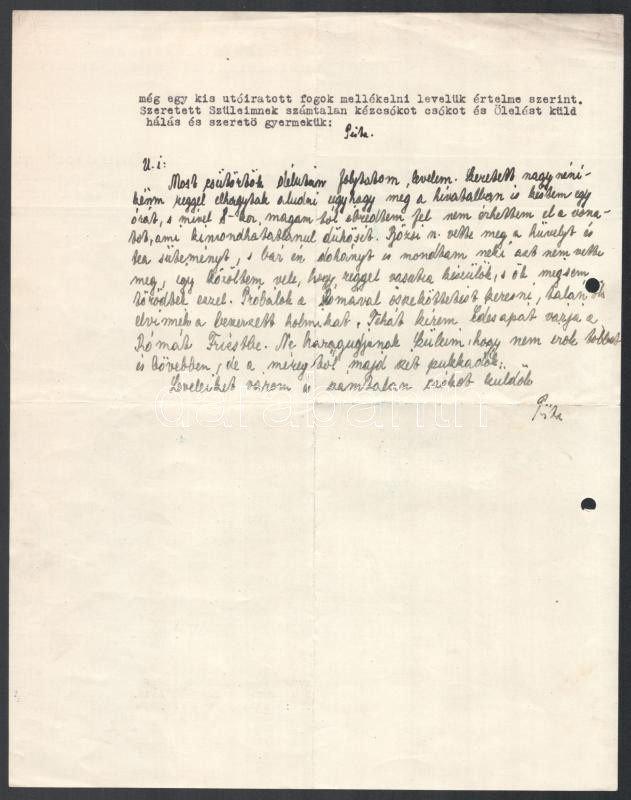 még egy kis utóiratott fogok mellékelni levelük értelme szerint.
Szeretett Szüleimnek számtalan kézcsókot csókot és Ölelést küld
hálás és szerető gyermekük:
Pista.
U.i:
Most csütörtök délután folytatom levelem. Szeretett nagynéni-
kéim reggel elhagytak aludni úgyhogy meg a hivatalban is késtem egy
órát, s mivel 8-kor, magamtól ébredtem fel nem érhettem el a vona-
tot, ami kimondhatatlanul dühösít. Böksi n. vette meg a hüvelyt és
tea süteményt, s bár én dohányt is mondtam neki azt nem vette
meg, így közöltem vele, hogy reggel vasutra készülök, s ők megsem
törődtek ezzel. Probálok a Rómával összeköttetést keresni, talán ők
elvinnék a beszerzett holmikat. Tehát kérem Édesapát várja a
Rómát Triestbe. Ne haragudjanak Szüleim, hogy nem irok többet
és bővebben, de a méregtől majd szét pukkadok.
Leveleiket várom és számtalan csókot küldök
Pista
darabanth